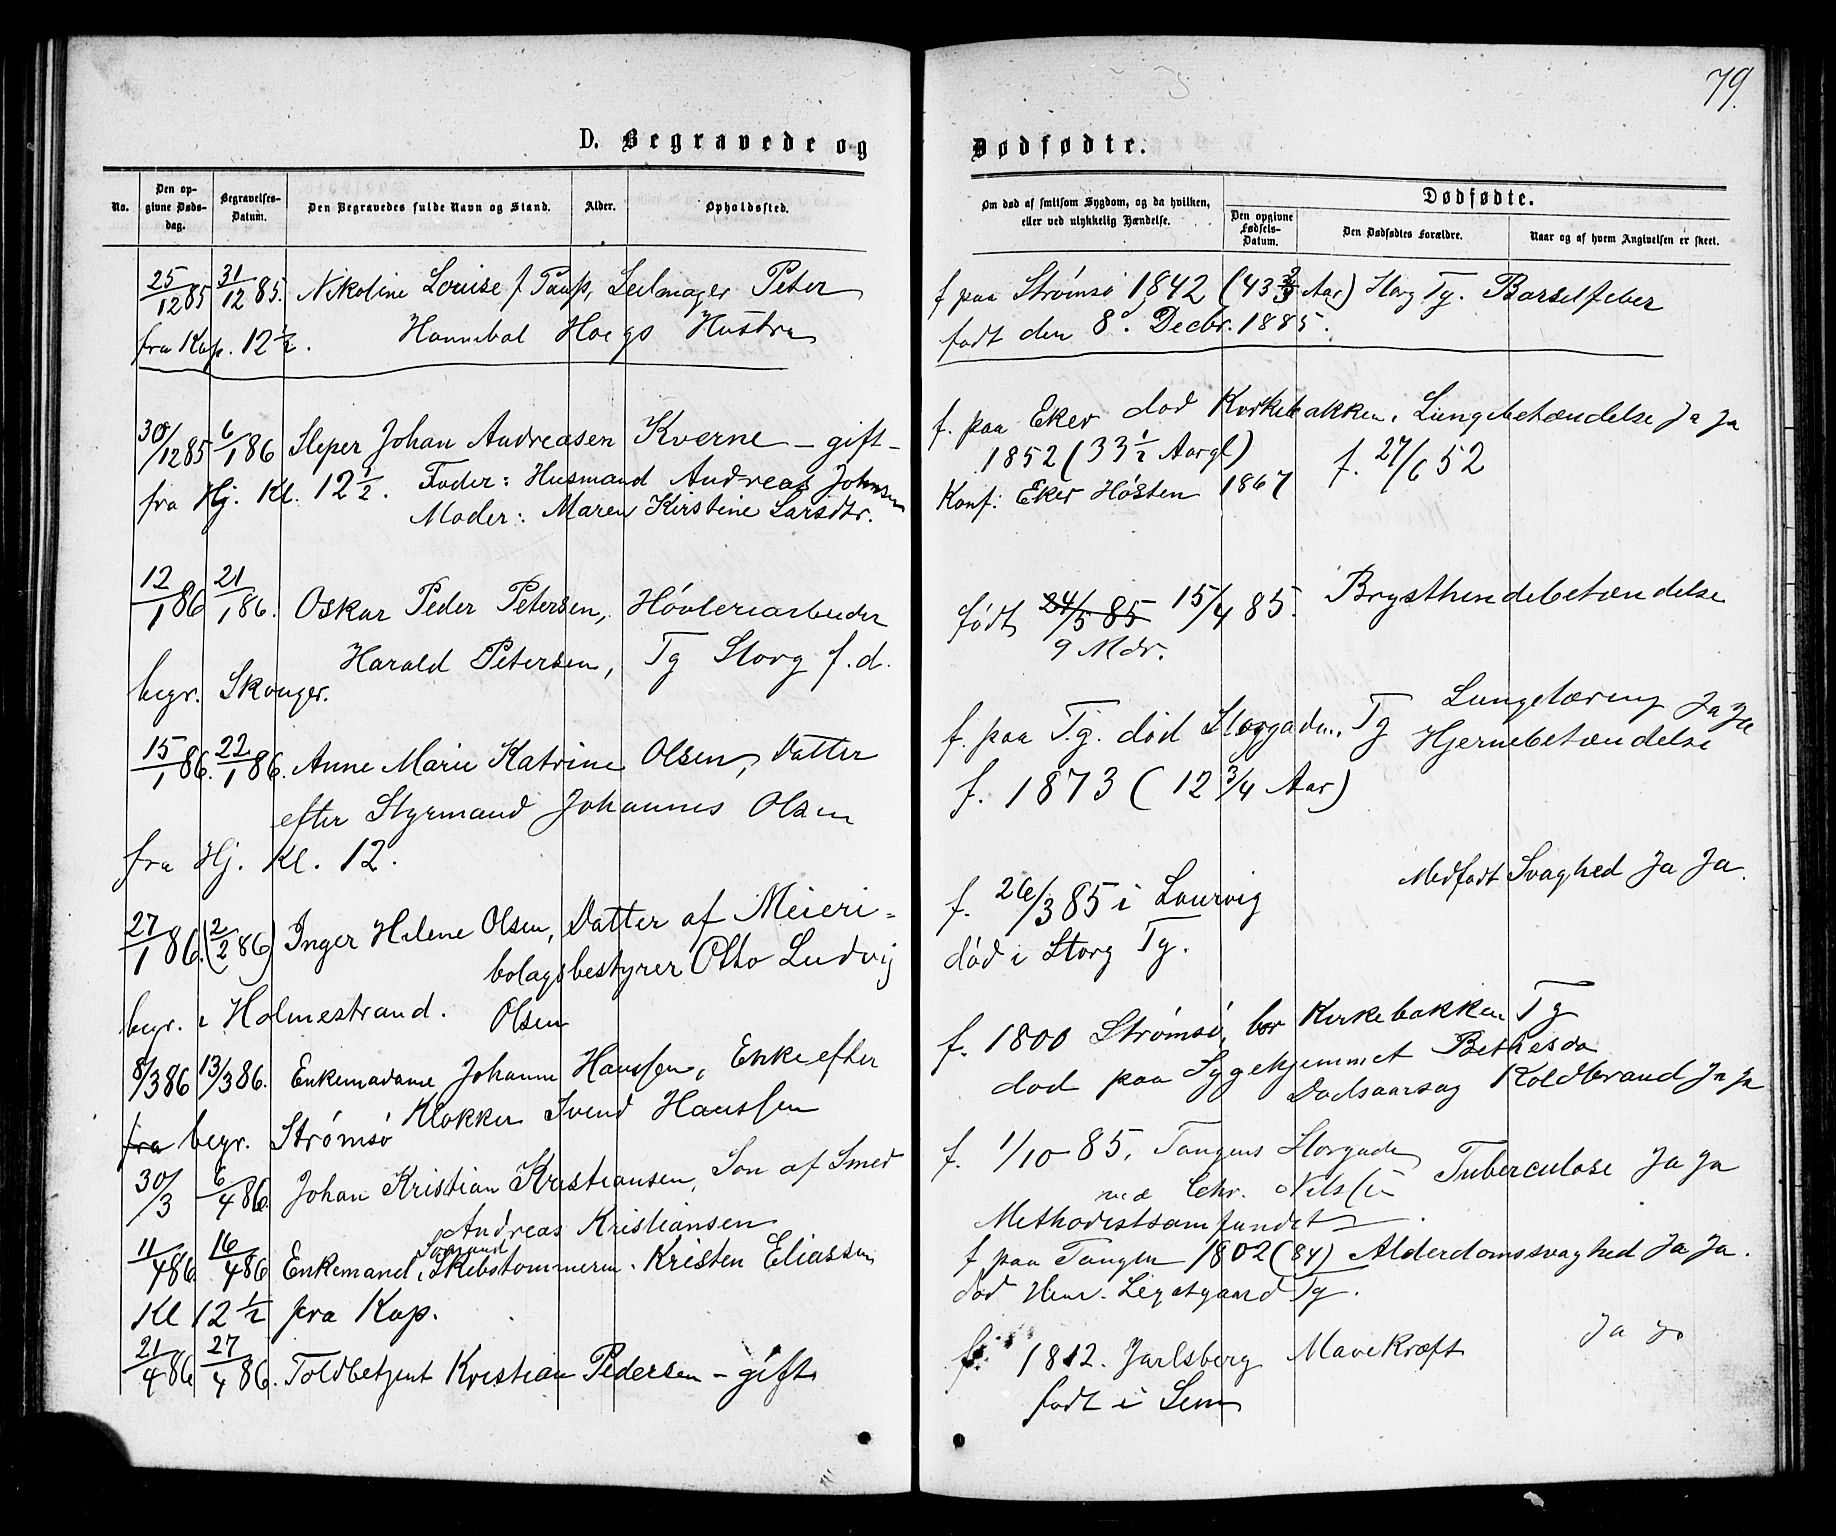 79.
D. Begravede og
Dødfødte.
No.
Den opgivne Døds-dag.
Begravelses-Datum.
Den Begravedes fulde Navn og Stand.
Alder.
Opholdssted.
Om død af smitsom Sygdom, og da hvilken, eller ved ulykkelig Hændelse.
Dødfødte.
Den opgivne Fødsels-Datum.
Den Dødfødtes Forældre.
Naar og af hvem Angivelsen er skeet.
25/12 85 31/12 85. Nikoline Louise f. Seilmager Peter
fra Kap. 12 1/2. Hannibal Hoegs Hustru
f paa Strømsø 1842 (43 2/3 Aar) Storg Tg. Barselfeber
født den 8de Decbr. 1885.
30/12 85 6/1 86 Sleper Johan Andreasen Kverne - gift -
fra Hj. Kl. 12 1/2. Fader: Husmand Andreas Johnsen
Moder: Maren Kirstine Larsdtr.
f. paa Eker død Kirkebakken. Lungebetændelse Ja Ja
1852 (33 1/2 Aargl) f. 27/6 52
Konf: Eker Høsten 1867
12/1 86 21/1 86. Oskar Peder Petersen, Høvleriarbeider
Harald Petersen, Tg Storg f. d.
begr. Skouger.
født 24/5 85 15/4 85. Brysthindebetændelse
9 Mdr.
15/1 86. 22/1 86. Anne Marie Katrine Olsen, Datter
efter Styrmand Johannes Olsen
fra Hj. Kl. 12.
f. paa Tg. død Storgaden. Tg Lungetæring Ja Ja
Hjernebetændelse
f. 1873 (12 3/4 Aar)
27/1 86. (2/2 86) Inger Helene Olsen, Datter af Meieri-
bolagsbestyrer Otto Ludvig
begr. i Holmestrand. Olsen
f. 26/3 85 i Laurvig Medfødt Svaghed Ja Ja.
død i Storg Tg.
8/3 86 13/3 86. Enkemadame Johanne Hanssen, Enke efter
Klokker Svend Hanssen
fra begr. Strømsø
f. 1800 Strømsø, bor Kirkebakken Tg
død paa Sygehjemmet Bethesda
Dødsaarsag Koldbrand Ja Ja
30/3 6/4 86. Johan Kristian Kristiansen, Søn af Smed
Andreas Kristiansen
f. 1/10 85, Tangens Storgade Tuberculose Ja Ja
ved Chr. Nilssen
Methodistsamfundet
11/4 86 16/4 86 Enkemand, Skibstømmerm. Kristen Eliassen
Kl 12 1/2 fra Kap.
f paa Tangen 1802 (84) Alderdomssvaghed Ja Ja.
død Tg.
21/4 86 27/4 86. Toldbetjent Kristian Pedersen - gift
f. 1812. Jarlsberg Mavekræft Ja Ja
født i Sem